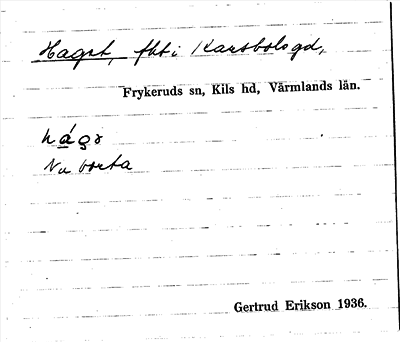 Haget, fht i Karsbols gd,
Frykeruds sn, Kils hd, Värmlands län.
Nu borta
Gertrud Erikson 1936.